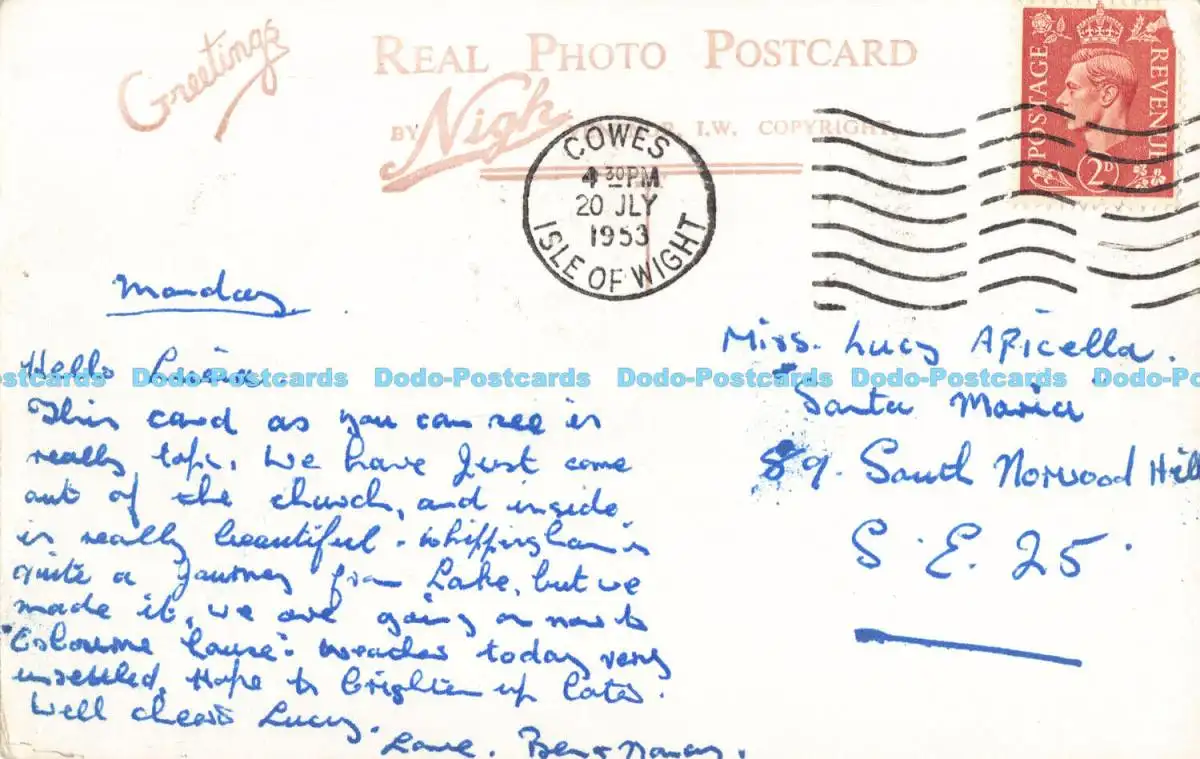 Greetings
REAL PHOTO POSTCARD
BY Nigh I.W. COPYRIGHT.
COWES
4 30 PM
20 JLY
1953
ISLE OF WIGHT
POSTAGE REVENUE
2D
Monday
Hello
This card as you can see is
really tops. We have just come
out of the church, and inside
is really beautiful. Whippingham is
quite a journey from Lake, but we
made it, we are going on now to
"Osbourne House". Weather today very
unsettled, Hope to brighten up later.
Well cheers Lucy.
Love. Ben & Nancy.
Miss. Lucy Apicella.
Santa Maria
89. South Norwood Hill
S.E. 25.
Dodo-Postcards Dodo-Postcards Dodo-Postcards Dodo-Postcards